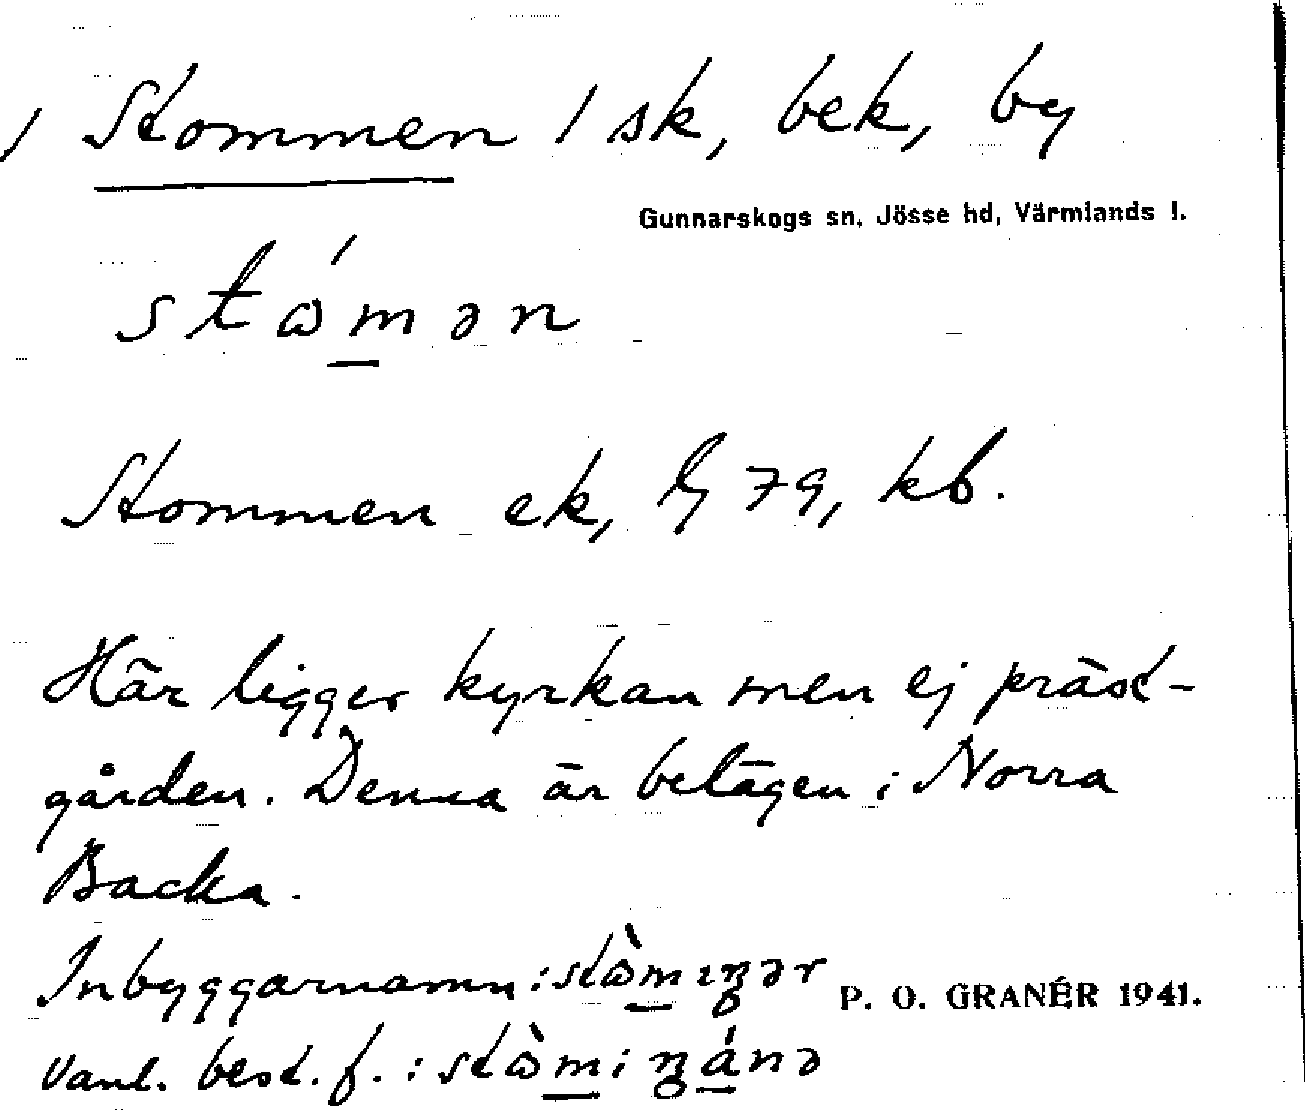 / Stommen / sk, bek, by
Gunnarskogs sn, Jösse hd, Värmlands l.
stǿmən
Stommen ek, 79, kb.
Här ligger kyrkan men ej präst-
gården. Denna är belägen i Norra
Backa.
Inbyggarnamn:
P. O. GRANÉR 1941.
Vanl. best. f. :